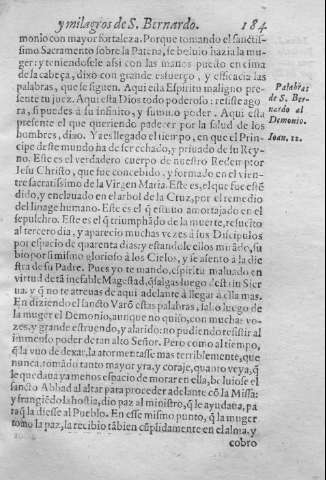 y milagros de S. Bernardo. 184
monio con mayor fortaleza. Porque tomando el sanctis-
simo Sacramento sobre la Patena, se boluio hazia la mu-
ger: y teniendosele assi con las manos puesto en cima
de la cabeça, dixo con grande esfuerço, y efficacia las
palabras, que se siguen. Aqui està Espiritu maligno pre-
sente tu juez. Aqui està Dios todo poderoso: resiste ago-
ra, si puedes à su infinito, y sumo poder. Aqui està
presente el que queriendo padecer por la salud de los
hombres, dixo. Ya es llegado el tiempo, en que el Prin-
cipe deste mundo ha de ser echado, y priuado de su Rey-
no. Este es el verdadero cuerpo de nuestro Redemptor
Jesu Christo, que fue concebido, y formado en el vien-
tre sacratissimo de la Virgen Maria. Este es, el que fue estẽ
dido, y enclauado en el arbol de la Cruz, por el remedio
del linage humano. Este es el q̃ estuuo amortajado en el
sepulchro. Este es el q̃ triumphãdo de la muerte, resucito
al tercero dia, y aparecio muchas vezes à sus Discipulos
por espacio de quarenta dias: y estandole ellos mirãdo, su
bio por si mismo glorioso à los Cielos, y se assento à la die
stra de su Padre. Pues yo te mando, espiritu maluado en
virtud de tã inefable Magestad, q̃ salgas luego desta su Sier
ua. y q̃ no te atreuas de aqui adelante à llegar à ella mas.
En diziendo el sancto Varõ estas palabras, salio luego de
la muger el Demonio, aunque no quiso, con muchas vo-
zes, y grande estruendo, y alarido: no pudiendo resistir al
immenso poder de tan alto Señor. Pero como al tiempo,
q̃ la vuo de dexar, la atormentasse mas terriblemente, que
nunca, tomãdo tanto mayor yra, y coraje, quanto veya, q̃
le quedaua ya menos espacio de morar en ella, boluiose el
sancto Abbad al altar para proceder adelante cõ la Missa:
y frangiẽdo la hostia, dio paz al ministro, q̃ le ayudaua, pa
raq̃ la diesse al Pueblo. En esse mismo punto, q̃ la muger
tomo la paz, la recibio tãbien cũplidamente en el alma, y
cobro
Palabras
de S. Ber-
nardo al
Demonio.
Ioan. 12.